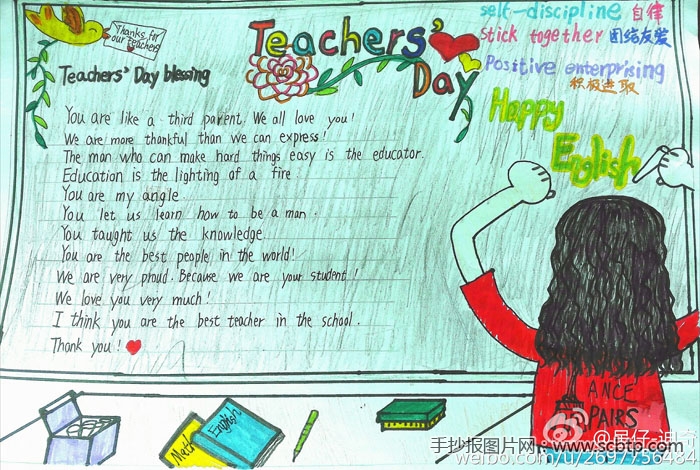 Thanks for
our teachers
Teachers'
Day
self-discipline 自律
stick together 团结友爱
Positive enterprising
积极进取
Happy
English
Teachers' Day blessing
You are like a third parent. We all love you!
We are more thankful than we can express!
The man who can make hard things easy is the educator.
Education is the lighting of a fire.
You are my angle.
You let us learn how to be a man.
You taught us the knowledge.
You are the best people in the world!
We are very proud. Because we are your student!
We love you very much!
I think you are the best teacher in the school.
Thank you!
Math
English
ANCE
PAIRS
手抄报图片网
www.scbtp.com